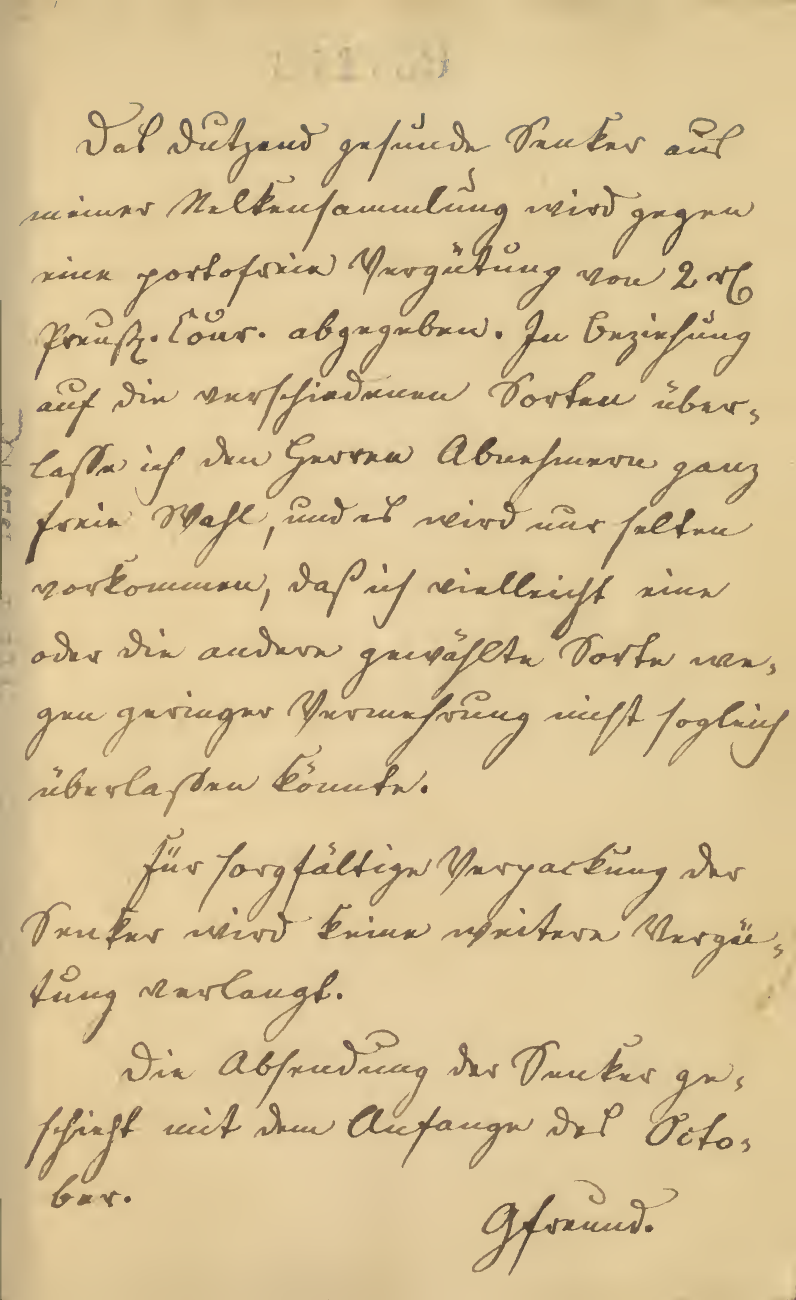 Das Dutzend gesunde Senker aus
meiner Nelkensammlung wird gegen
eine portofreie Vergütung von 2 rℓ
Preuß. Cour. abgegeben. In Beziehung
auf die verschiedenen Sorten über-
lasse ich den Herren Abnehmern ganz
freie Wahl, und es wird nur selten
vorkommen, daß ich vielleicht eine
oder die andere gewählte Sorte we-
gen geringer Vermehrung nicht sogleich
überlaßen könnte.
Für sorgfältige Verpackung der
Senker wird keine weitere Vergü-
tung verlangt.
Die Absendung der Senker ge-
schieht mit dem Anfange des Octo-
ber.
Gfreund.